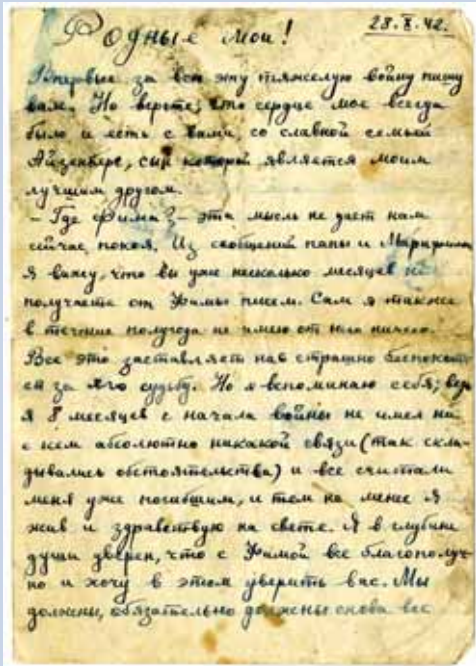 28.X.42.
Родные мои!
Впервые за всю эту тяжелую войну пишу
вам. Но верьте, что сердце мое всегда
было и есть с вами, со славной семьей
Айзенберг, сын которой является моим
лучшим другом.
- Где Фима? - эта мысль не дает нам
сейчас покоя. Из сообщений папы и
я вижу, что вы уже несколько месяцев не
получаете от Фимы писем. Сам я также
в течение полугода не имею от него ничего.
Все это заставляет нас страшно беспокоит
ся за его судьбу. Но я вспоминаю себя; ведь
я 8 месяцев с начала войны не имел ни
с кем абсолютно никакой связи (так скла-
дывались обстоятельства) и все считали
меня уже погибшим, и тем не менее я
жив и здравствую на свете. Я в глубине
души уверен, что с Фимой все благополуч-
но и хочу в этом уверить вас. Мы
должны, обязательно должны снова все